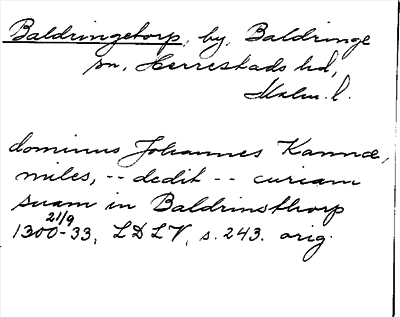 Baldringetorp, by, Baldringe
sn, Herrestads hd,
Malm. l.
dominus Johannes Kannæ,
miles, -- dedit -- curiam
suam in Baldrinsthorp
21/9
1300-33, LDLV, s. 243. orig.